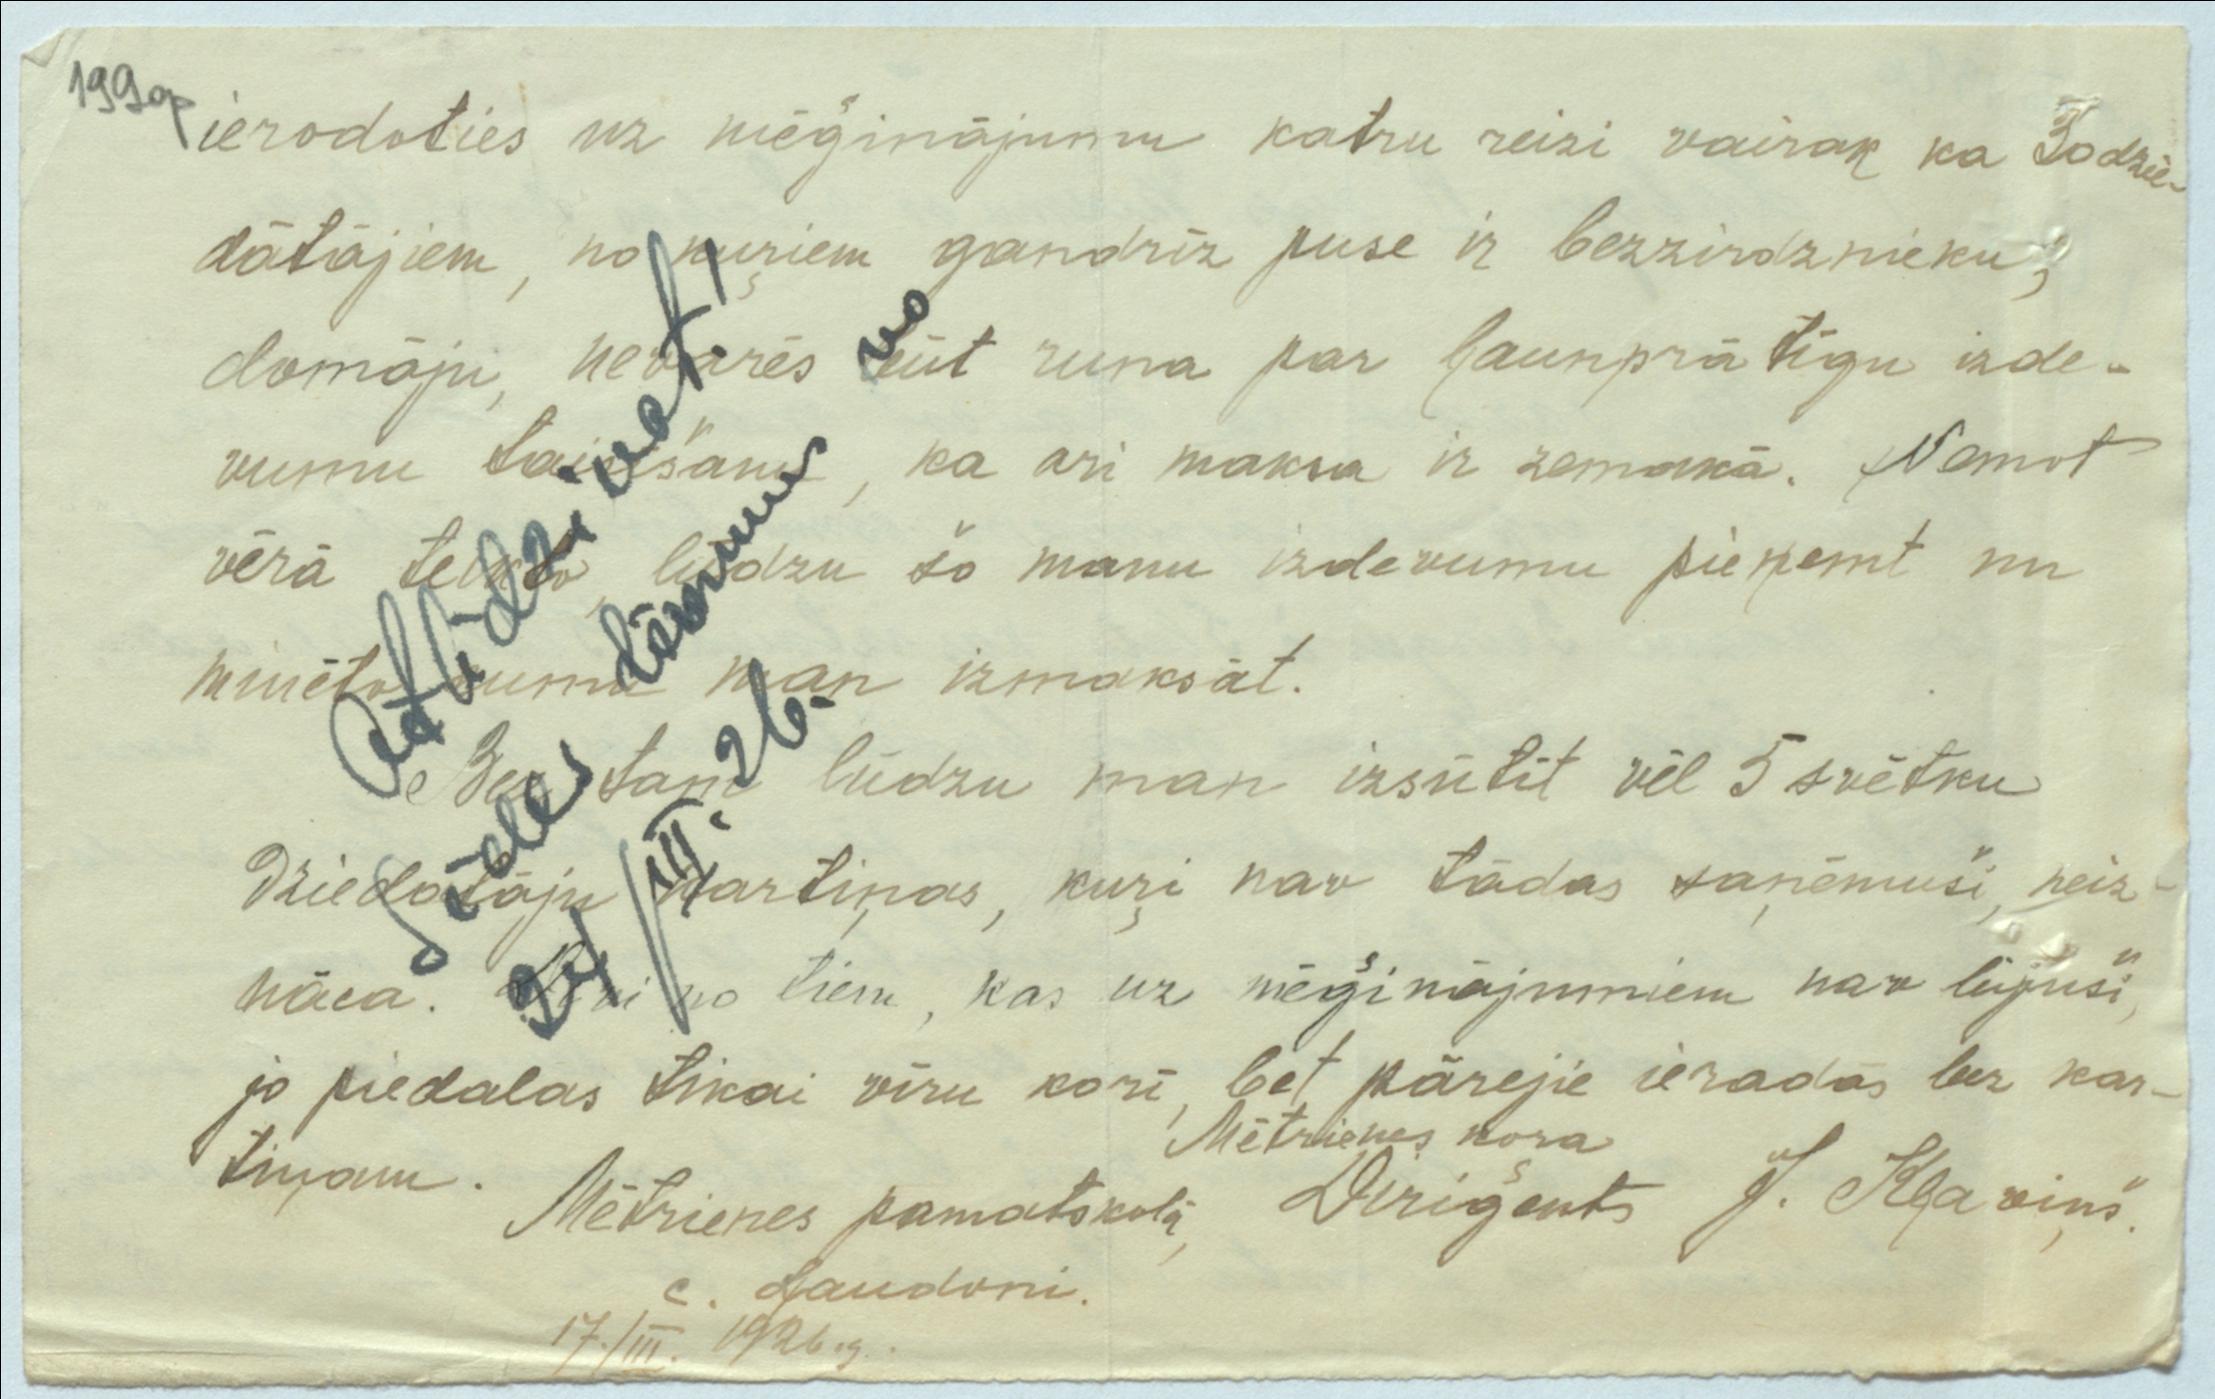 199op
ierodoties uz mēģinājumu katru reizi vairak ka 30 dzie-
dātājiem, no kuŗiem gandrīz puse ir bezzirdznieku,
domāju, nevarēs būt runa par ļaunprātīgu izde-
vumu taisīšanu, ka ari maksa ir zemakā. Ņemot
vērā teikto, lūdzu šo manu izdevumu pieņemt un
minēto sumu man izmaksāt.
Bez tam lūdzu man izsūtīt vēl 5 svētku
Dziedatāju kartiņas, kuŗi nav tādas saņēmuši, neiz-
nāca. no tiem, kas uz mēģinājumiem nav bijuši,
jo piedalas tikai vīru korī, bet pārejie ieradās bez kar-
tiņam.
Mētrienes kora
Mētrienes pamatskolā, Diriģents J. Kļaviņš.
c. Ļaudoni.
17./III. 1926.g.
Atlīdzināt!
Sēdes lēmums no
24/III. 26.